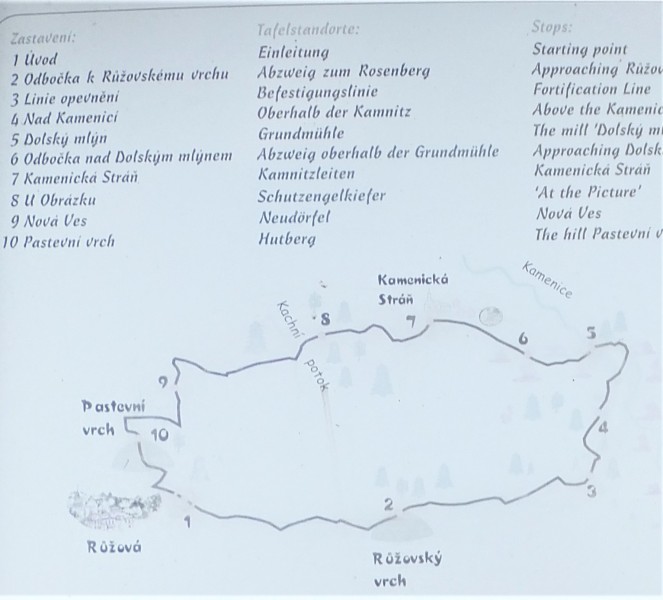 Zastavení:
1 Úvod
2 Odbočka k Růžovskému vrchu
3 Linie opevnění
4 Nad Kamenicí
5 Dolský mlýn
6 Odbočka nad Dolským mlýnem
7 Kamenická Stráň
8 U Obrázku
9 Nová Ves
10 Pastevní vrch
Tafelstandorte:
Einleitung
Abzweig zum Rosenberg
Befestigungslinie
Oberhalb der Kamnitz
Grundmühle
Abzweig oberhalb der Grundmühle
Kamnitzleiten
Schutzengelkiefer
Neudörfel
Hutberg
Stops:
Starting point
Approaching Růžov
Fortification Line
Above the Kamenic
The mill 'Dolský ml
Approaching Dolsk
Kamenická Stráň
'At the Picture'
Nová Ves
The hill Pastevní v
Kamenická
Stráň
Kamenice
Kachní
potok
8
7
6
5
9
Pastevní
vrch
10
4
3
2
1
Růžová
Růžovský
vrch